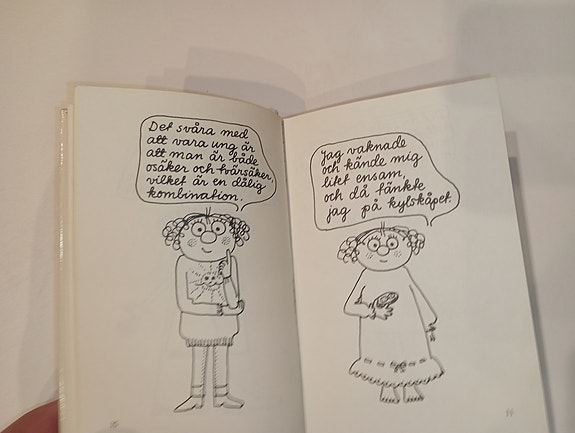 Det svåra med
att vara ung är
att man är både
osäker och tvärsäker,
vilket är en dålig
kombination.
Jag vaknade
och kände mig
litet ensam,
och då tänkte
jag på kylskåpet.